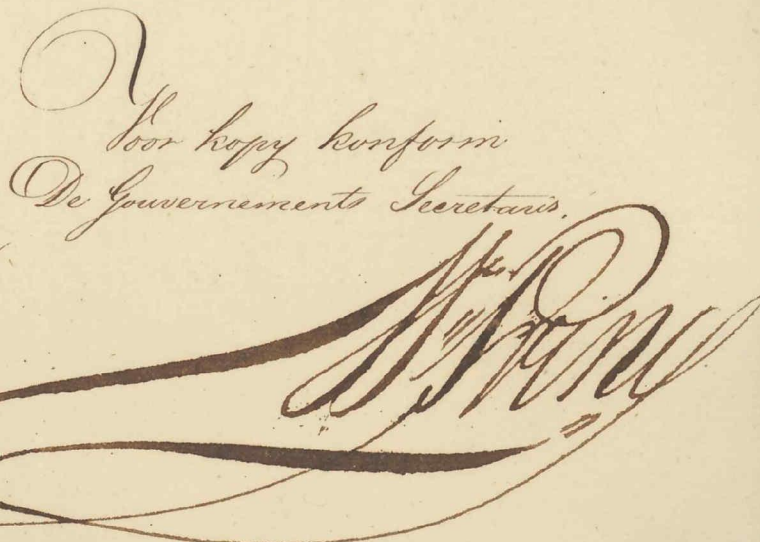 Voor kopy konform
De Gouvernements Secretaris.
Wm Prince